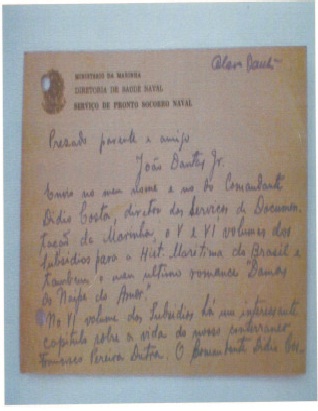 MINISTERIO DA MARINHA
DIRETORIA DE SAUDE NAVAL
SERVIÇO DE PRONTO SOCORRO NAVAL
Prezado parente e amigo
João Dantas Jr.
Envio no meu nome e no do Comandante
Didio Costa, diretor do Serviço de Documen
tação da Marinha, o V e VI volumes dos
Subsidios para a Hist. Maritima do Brasil e
tambem o meu ultimo romance Damas
do Naipe do Amor."
No VI volume dos Subsidios há um interessante
capitulo sobre a vida do nosso conterraneo
Francisco Pereira Dutra. O Comandante Didio Cos-